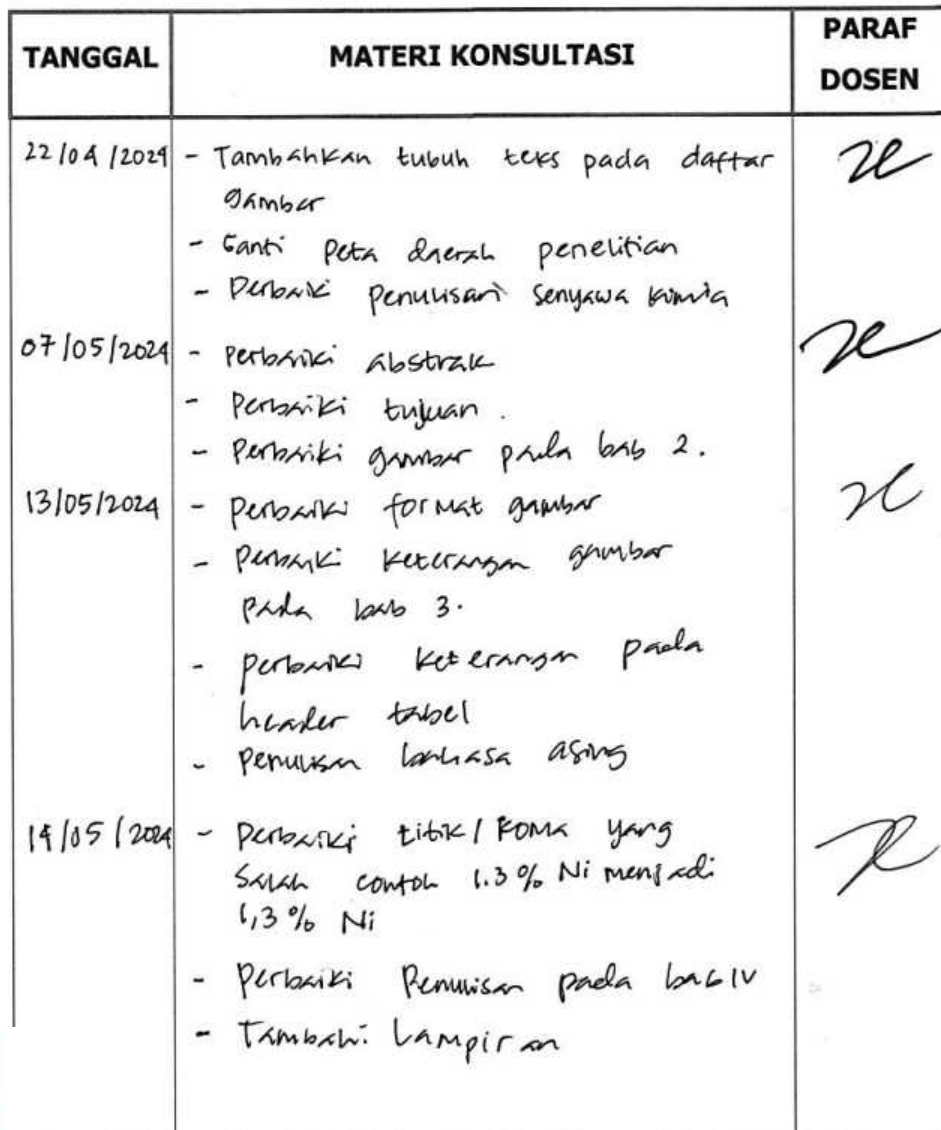 TANGGAL MATERI KONSULTASI PARAF DOSEN
22/04/2024 - Tambahkan tubuh teks pada daftar
gambar
- Ganti Peta daerah penelitian
- Perbaiki penulisan senyawa kimia
07/05/2024 - Perbaiki abstrak
- Perbaiki tujuan.
- Perbaiki gambar pada bab 2.
13/05/2024 - Perbaiki format gambar
- Perbaiki keterangan gambar
pada bab 3.
- perbaiki keterangan pada
header tabel
- Penulisan bahasa asing
14/05/2024 - Perbaiki titik/koma yang
salah contoh 1.3% Ni menjadi
1,3% Ni
- Perbaiki Penulisan pada bab IV
- Tambah: Lampiran